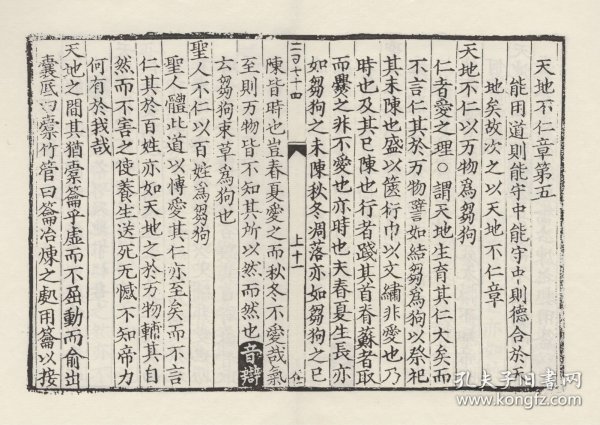 天地不仁章第五
能用道則能守中能守中則德合於天
地矣故次之以天地不仁章
天地不仁以万物爲芻狗
仁者愛之理○謂天地生育其仁大矣而
不言仁其於万物譬言如結芻爲狗以祭祀
其未陳也盛以篋衍巾以文繡非愛也乃
時也及其已陳也行者踐其首脊蘇者取
而爨之非不愛也亦時也夫春夏生長亦
如芻狗之未陳秋冬凋落亦如芻狗之已
二百七十四
上十一
陳皆時也豈春夏愛之而秋冬不愛哉氣
至則万物皆不知其所以然而然也 音辯
云芻狗束草爲狗也
聖人不仁以百姓爲芻狗
聖人體此道以博愛其仁亦至矣而不言
仁其於百姓亦如天地之於万物輔其自
然而不害之使養生送死无憾不知帝力
何有於我哉
天地之間其猶橐籥乎虛而不屈動而俞出
囊底曰橐竹管曰籥冶煉之處用籥以接
孔夫子旧书网
www.kongfz.com